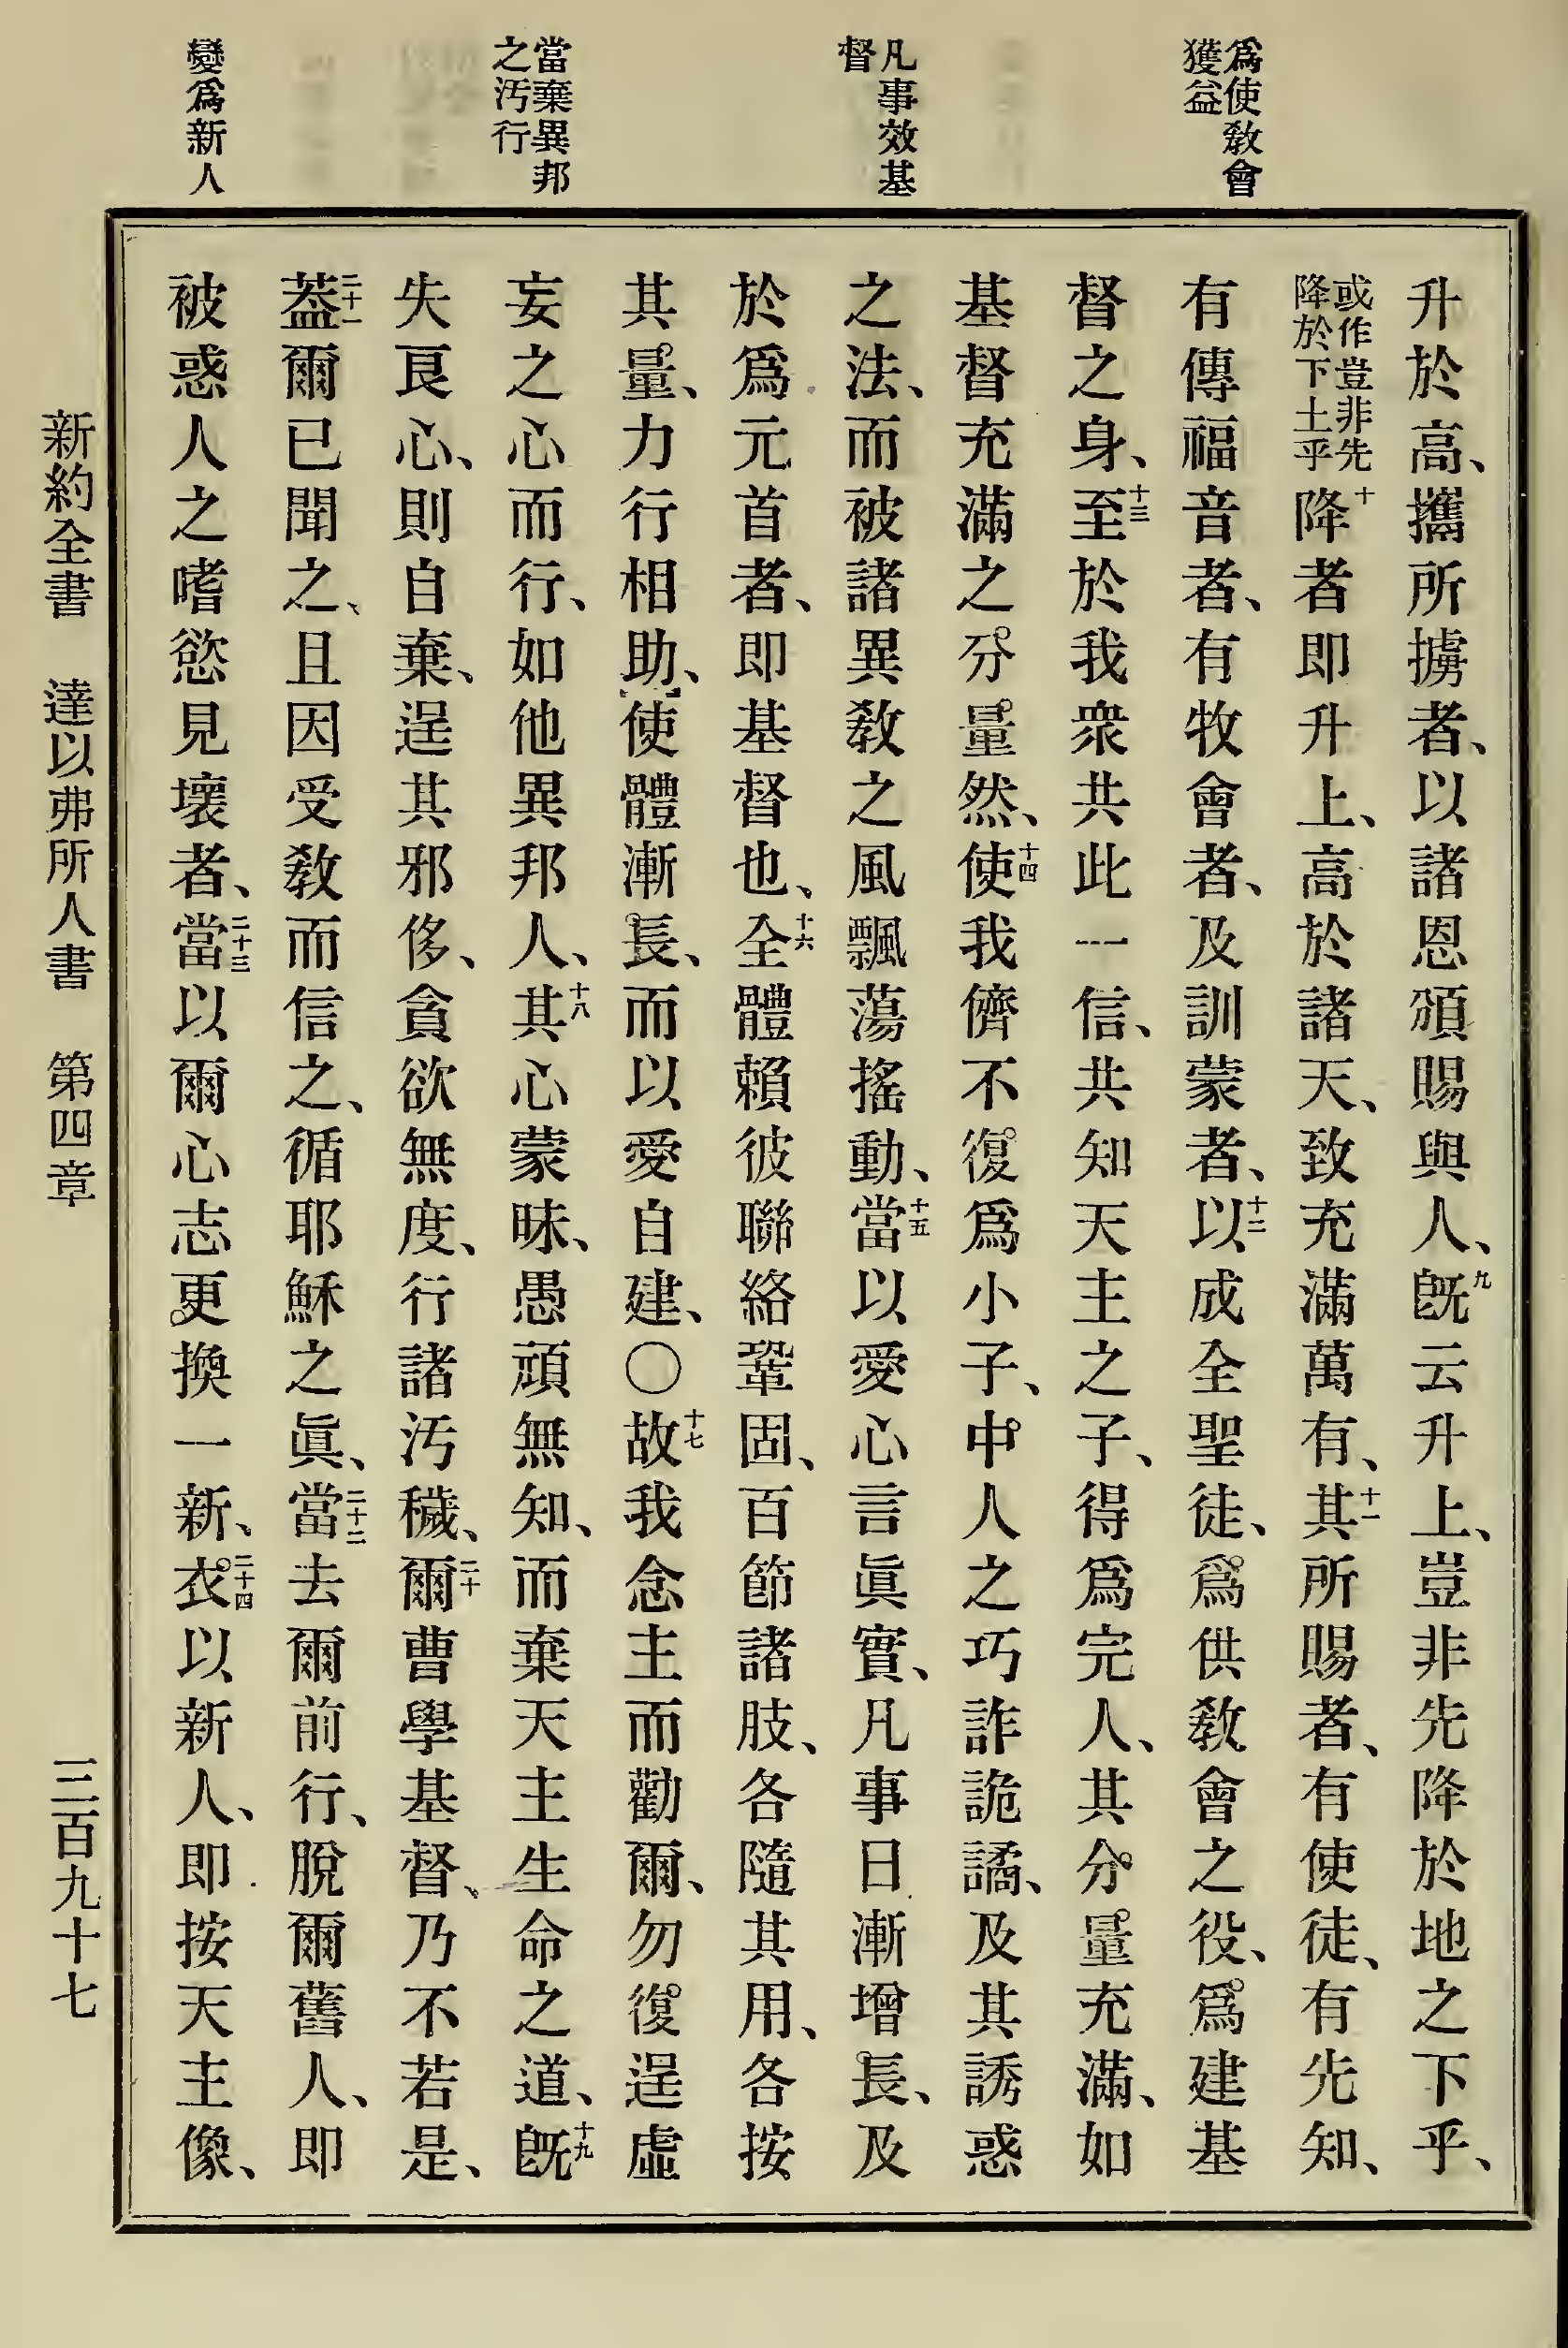 爲使敎會
獲益
凡事效基
督
當棄異邦
之汚行
變爲新人
升於高、攜所擄者、以諸恩頒賜與人、九旣云升上、豈非先降於地之下乎、
或作豈非先降於下土乎十降者即升上、高於諸天、致充滿萬有、十一其所賜者、有使徒、有先知、
有傳福音者、有牧會者、及訓蒙者、十二以成全聖徒、爲供敎會之役、爲建基
督之身、十三至於我衆共此一信、共知天主之子、得爲完人、其分量充滿、如
基督充滿之分量然、十四使我儕不復爲小子、中人之巧詐詭譎、及其誘惑
之法、而被諸異敎之風飄蕩搖動、十五當以愛心言眞實、凡事日漸增長、及
於爲元首者、即基督也、十六全體賴彼聯絡鞏固、百節諸肢、各隨其用、各按
其量、力行相助、使體漸長、而以愛自建、〇十七故我念主而勸爾、勿復逞虛
妄之心而行、如他異邦人、十八其心蒙昧、愚頑無知、而棄天主生命之道、十九旣
失良心、則自棄、逞其邪侈、貪欲無度、行諸汚穢、二十爾曹學基督、乃不若是、
二十一蓋爾已聞之、且因受敎而信之、循耶穌之眞、二十二當去爾前行、脫爾舊人、即
被惑人之嗜慾見壞者、二十三當以爾心志更換一新、二十四衣以新人、即按天主像、
新約全書 達以弗所人書 第四章 三百九十七